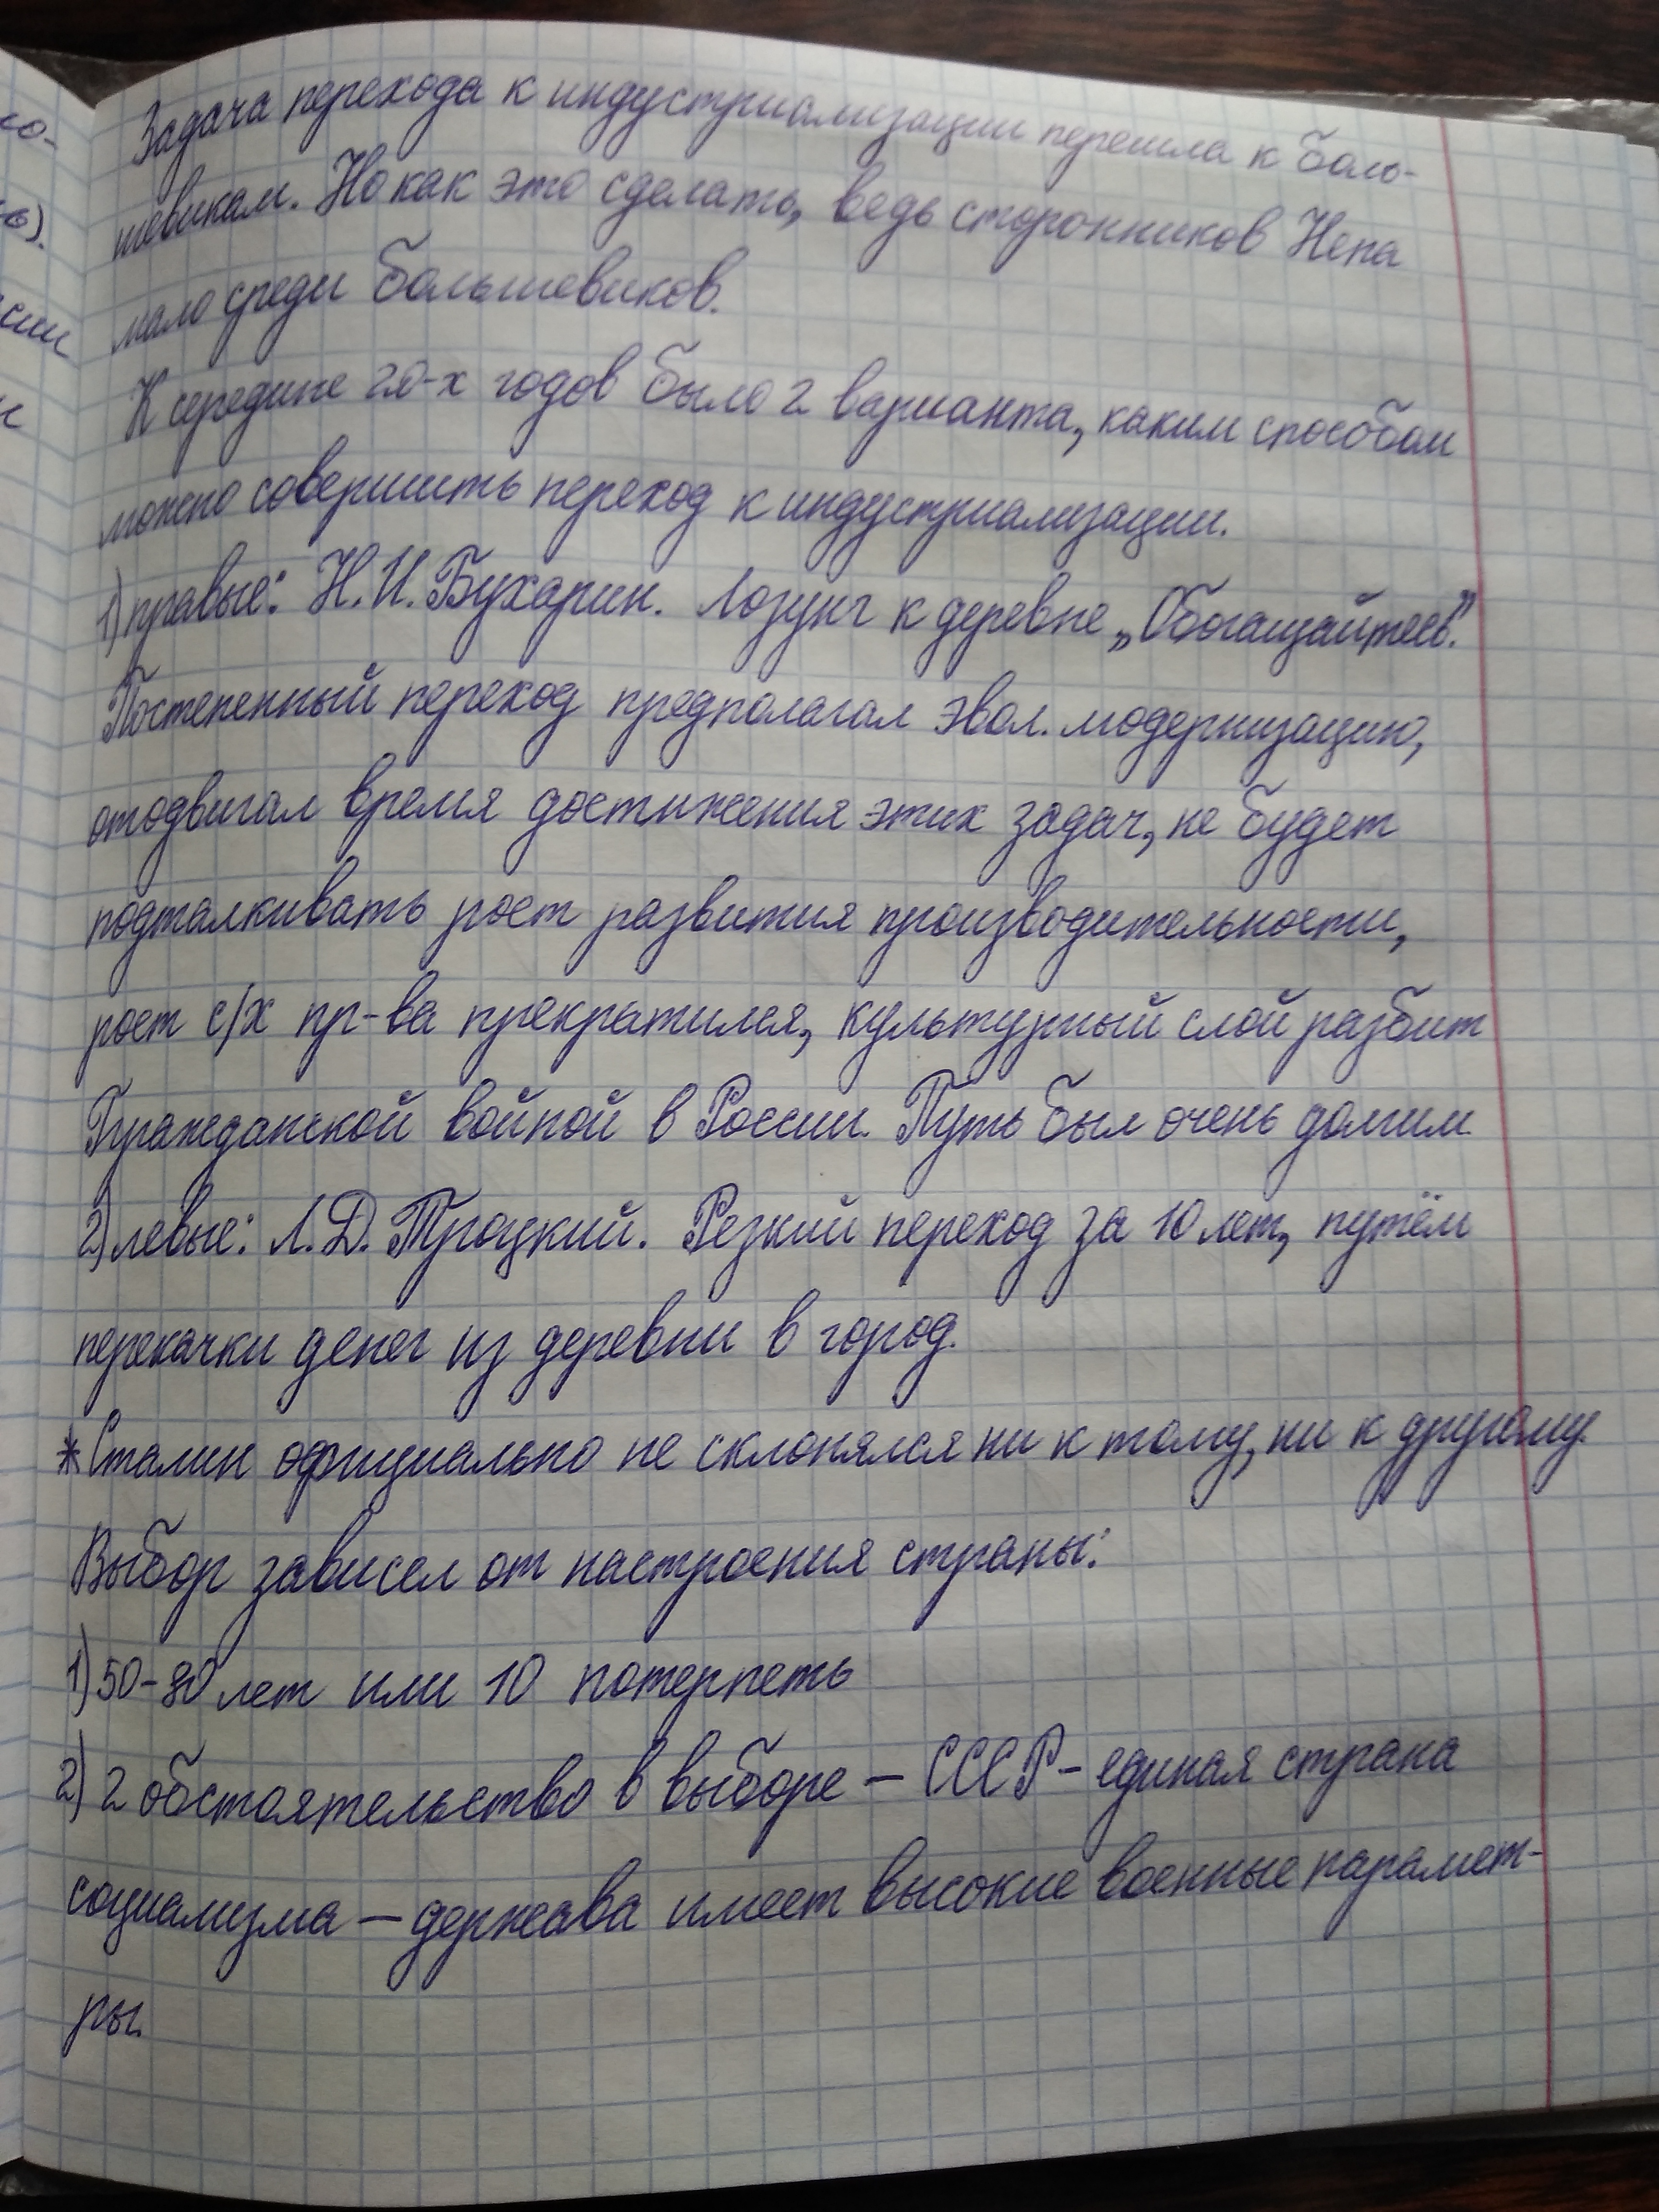 Задача перехода к индустриализации перешла к боль-
шевикам. Но как это сделать, ведь сторонников Непа
мало среди большевиков.
К середине 20-х годов было 2 варианта, каким способом
можно совершить переход к индустриализации.
1) правые: Н.И. Бухарин. Лозунг к деревне „Обогащайтесь".
Постепенный переход предполагал эвол. модернизацию,
отодвигал время достижения этих задач, не будет
подталкивать рост развития производительности,
рост с/х пр-ва прекратился, культурный слой разбит
Гражданской войной в России. Путь был очень долгим.
2) левые: Л.Д. Троцкий. Резкий переход за 10 лет, путём
перекачки денег из деревни в город.
* Сталин официально не склонялся ни к тому, ни к другому.
Выбор зависел от настроения страны:
1) 50-80 лет или 10 потерпеть
2) 2 обстоятельство в выборе – СССР - единая страна
социализма – держава имеет высокие военные парамет-
ры.